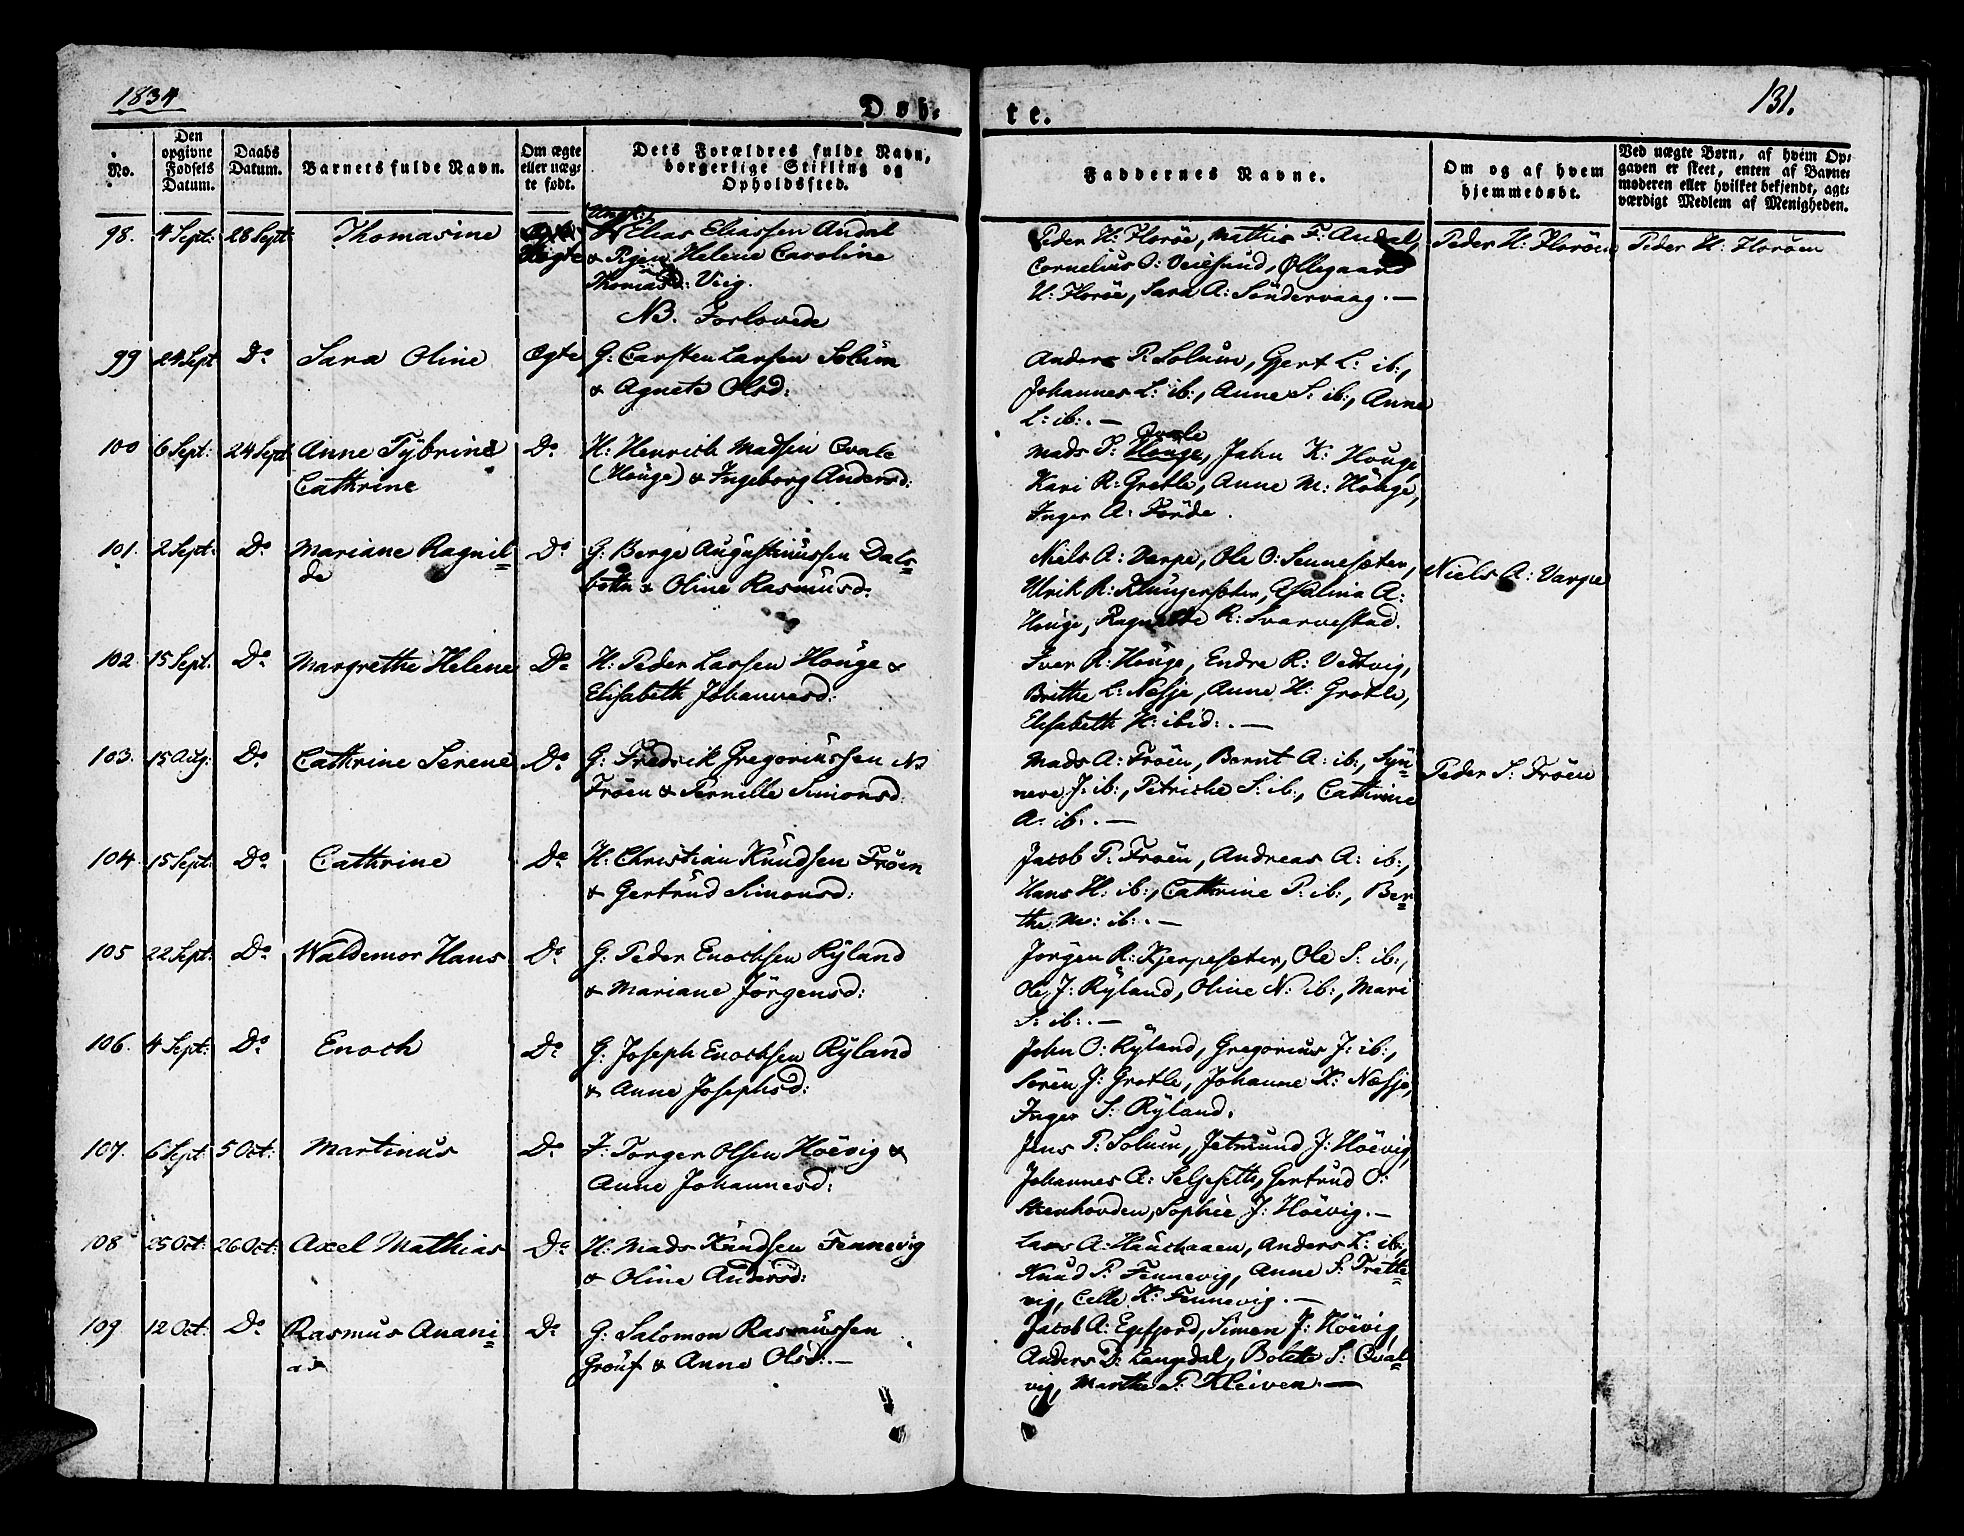 1834
131.
Døb-
te.
No.
Den opgivne Fødsels Datum.
Daabs Datum.
Barnets fulde Navn.
Om ægte eller uægte født.
Dets Forældres fulde Navn, borgerlige Stilling og Opholdssted.
Faddernes Navne.
Om og af hvem hjemmedøbt.
Ved uægte Børn, af hvem Opgaven er skeet, enten af Barnemoderen eller hvilket bekjendt, agtværdigt Medlem af Menigheden.
98. 4 Sept: 28 Sept: Thomasine
Elias Eliassen Andal
& Pigen Helene Caroline
Thomasd: Viig.
NB. Forlovede
Peder H: Florøe, Mathis P: Andal,
Cornelius O: Veiesund, Øllegaard
U: Florøe, Sara A: Söndervaag. —
Peder H: Florøen
Peder H: Florøen
99 24 Sept Do Sara Oline Ægte
G: Carsten Larsen Solum
& Agnete Olsd:
Anders P: Solum, Gjert L: ib:,
Johannes L: ib:, Anne S: ib:, Anne
L: ib:. —
100 6 Sept: 24 Sept Anne Tybrine
Cathrine
Do
H: Henrich Madsen Qvale
(Houge) & Ingeborg Andersd:
Mads P: Houge, John K: Houge,
Kari R: Grotle, Anne M: Houge,
Inger A: Förde.
101. 2 Sept: Do Mariane Ragnil-
de
Do
G: Berge Augustinussen Dals-
botn & Oline Rasmusd:
Niels A: Varpe, Ole O: Sennesæter,
Ulrik R: Klungersæter, A
Houge, R: Svarvestad.
Niels A: Varpe
102 15 Sept. Do Margrethe Helene Do
H: Peder Larsen Houge &
Elisabeth Johannesd:
Iver R: Houge, Endre R: Vedvig,
Brithe L: Nesje, Anne H: Grotle,
Elisabeth H: ibid:. —
103. 15 Aug: Do Cathrine Serene Do
G: Fredrik Gregoriussen
Frøen & Pernille Simonsd:
Mads A: Frøen, Bernt A: ib:, Syn-
neve J: ib:, Petriche S: ib:, Cathrine
A: ib:. —
Peder S: Frøen
104. 15 Sept: Do Cathrine Do
H: Christian Knudsen Frøen
& Gertrud Simonsd:
Jacob P: Frøen, Andreas A: ib:,
Hans H: ib:, Cathrine P: ib:, Ber-
the M: ib:. —
105 22 Sept: Do Waldemor Hans Do
G: Peder Enochsen Ryland
& Mariane Jörgensd:
Jörgen R: Kjerpesæter, Ole S: ib:,
Ole J: Ryland, Oline N: ib:, Mari
S: ib:. —
106. 4 Sept: Do Enoch Do
G: Joseph Enochsen Ryland
& Anne Josephsd:
John O: Ryland, Gregorius J: ib:,
Sören J: Grotle, Johanne K: Næsje,
Inger S: Ryland.
107. 6 Sept. 5 Oct: Martinus Do
F: Torger Olsen Höevig &
Anne Johannesd:
Jens P: Solum, Jetmund J: Höevig,
Johannes A: Seljesetth, Gertrud O:
Steenhovden, Sophie J: Höevig. —
108 25 Oct: 26 Oct: Axel Mathias Do
H: Mads Knudsen Fennevig
& Oline Andersd:
Lars A: Anders L: ib:,
Knud P: Fennevig, Anne S: Trette-
vig, Celle K: Fennevig. —
109 12 Oct: Do Rasmus Anani-
as
Do
G: Salomon Rasmussen
Grouf & Anne Olsd:. —
Jacob A: Egefjord, Simen J: Höevig,
Anders D: Langedal, Bolette S: Qval-
vig, Marthe P: Kleiven. —